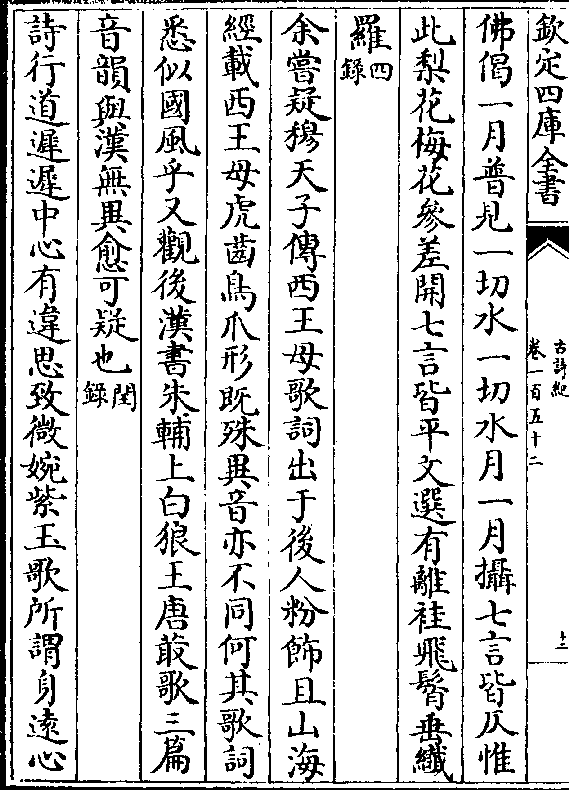 欽定四庫全書
古詩紀
卷一百五十二
十三
佛偈一月普見一切水一切水月一月攝七言皆仄惟
此梨花梅花參差開七言皆平文選有離袿飛髾垂纖
羅四錄
余嘗疑穆天子傳西王母歌詞出于後人粉飾且山海
經載西王母虎齒鳥爪形既殊異音亦不同何其歌詞
悉似國風乎又觀後漢書朱輔上白狼王唐菆歌三篇
音韻與漢無異愈可疑也閏錄
詩行道遲遲中心有違思致微婉紫玉歌所謂身遠心